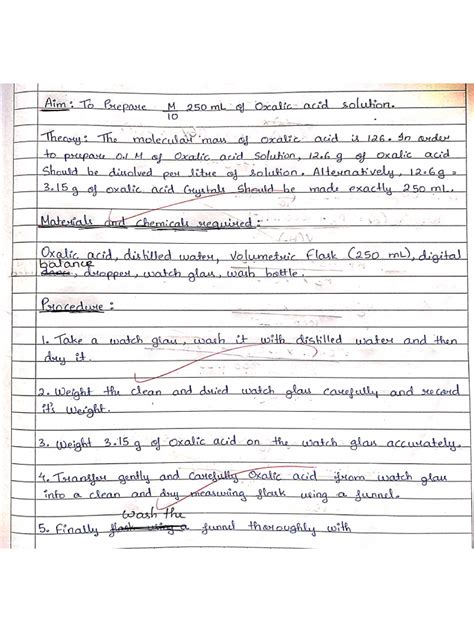 Aim: To Prepare M/10 250 mL of Oxalic acid solution.
Theory: The molecular mass of oxalic acid is 126. In order
to prepare 0.1 M of Oxalic acid Solution, 12.6 g of Oxalic acid
Should be dissolved per litre of solution. Alternatively, 12.6g =
3.15 g of oxalic acid Crystals Should be made exactly 250 mL.
Materials and chemicals required:
Oxalic acid, distilled water, volumetric Flask (250 mL), digital
balance, dropper, watch glass, wash bottle.
Procedure:
1. Take a watch glass, wash it with distilled water and then
dry it.
2. Weight the clean and dried watch glass carefully and record
it's Weight.
3. Weight 3.15 g of Oxalic acid on the watch glass accurately.
4. Transfer gently and carefully Oxalic acid from watch glass
into a clean and dry measuring flask using a funnel.
wash the
5. Finally flask using a funnel thoroughly with